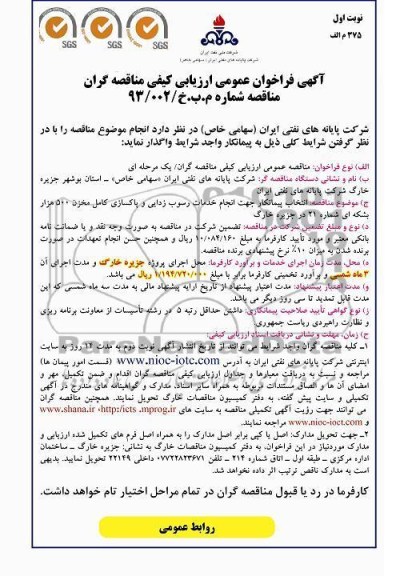 نوبت اول
۳۷۵ م الف
SGS SGS SGS
شرکت ملی نفت ایران
شرکت پایانه های نفتی ایران (سهامی خاص)
آگهی فراخوان عمومی ارزیابی کیفی مناقصه گران
مناقصه شماره م.ب.خ/۹۳/۰۰۲
شرکت پایانه های نفتی ایران (سهامی خاص) در نظر دارد انجام موضوع مناقصه را با در
نظر گرفتن شرایط کلی ذیل به پیمانکار واجد شرایط واگذار نماید:
الف) نوع فراخوان: مناقصه عمومی ارزیابی کیفی مناقصه گران/ یک مرحله ای
ب) نام و نشانی دستگاه مناقصه گر: شرکت پایانه های نفتی ایران «سهامی خاص» ـ استان بوشهر جزیره
خارگ شرکت پایانه های نفتی ایران
ج) موضوع مناقصه: انتخاب پیمانکار جهت انجام خدمات رسوب زدایی و پاکسازی کامل مخزن ۵۰۰ هزار
بشکه ای شماره ۲۱ در جزیره خارگ
د) نوع و مبلغ تضمین شرکت در مناقصه: تضمین شرکت در مناقصه به صورت وجه نقد و یا ضمانت نامه
بانکی معتبر و مورد تأیید کارفرما به مبلغ ۱۰/۰۸۴/۱۶۰ ریال و همچنین حسن انجام تعهدات در صورت
برنده شدن به میزان ۱۰٪ نرخ پیشنهادی برنده مناقصه.
ه) محل، مدت زمان اجرای خدمات و برآورد کارفرما: محل اجرای پروژه جزیره خارگ و مدت اجرای آن
۳ ماه شمسی و برآورد تخمینی کارفرما برابر با مبلغ ۱/۱۹۴/۷۲۰/۰۰۰ ریال می باشد.
و) مدت اعتبار پیشنهاد: مدت اعتبار پیشنهاد از تاریخ ارایه پیشنهاد مالی به مدت سه ماه شمسی که این
مدت قابل تمدید تا سی روز دیگر می باشد.
ز) نوع گواهی تأیید صلاحیت پیمانکاری: داشتن حداقل رتبه ۵ در رشته تأسیسات از معاونت برنامه ریزی
و نظارت راهبردی ریاست جمهوری
ح) زمان، مهلت و نشانی دریافت اسناد ارزیابی کیفی:
۱ـ کلیه مناقصه گران واجد شرایط می توانند از تاریخ انتشار آگهی نوبت دوم به مدت ۱۴ روز به سایت
اینترنتی شرکت پایانه های نفتی ایران به آدرس www.nioc-iotc.com (قسمت امور پیمان ها)
مراجعه و نسبت به دریافت معیارها و جداول ارزیابی کیفی مناقصه گران اقدام و ضمن تکمیل، مهر و
امضای آن ها و الصاق مستندات مربوطه به همراه سایر اسناد، مدارک و گواهینامه های مندرج در آگهی
تکمیلی و سایت پیش گفته، به دفتر کمیسیون مناقصات خارگ تحویل نمایند. همچنین مناقصه گران
می توانند جهت رؤیت آگهی تکمیلی مناقصه به سایت های www.shana.ir ،http:/iets .mporg.ir
و www.nioc-iotc.com مراجعه نمایند.
۲ـ جهت تحویل مدارک: اصل یا کپی برابر اصل مدارک را به همراه اصل فرم های تکمیل شده ارزیابی و
مدارک موردنیاز در این فراخوان، به دفتر کمیسیون مناقصات خارگ به نشانی: جزیره خارگ ـ ساختمان
اداره مرکزی ـ طبقه اول ـ اتاق شماره ۲۱۴ ـ تلفن ۰۷۷۲۲۸۲۳۶۷۱ داخلی ۲۲۱۴۹ تحویل نمایید. بدیهی
است به مدارک ناقص ترتیب اثر داده نخواهد شد.
کارفرما در رد یا قبول مناقصه گران در تمام مراحل اختیار تام خواهد داشت.
روابط عمومی